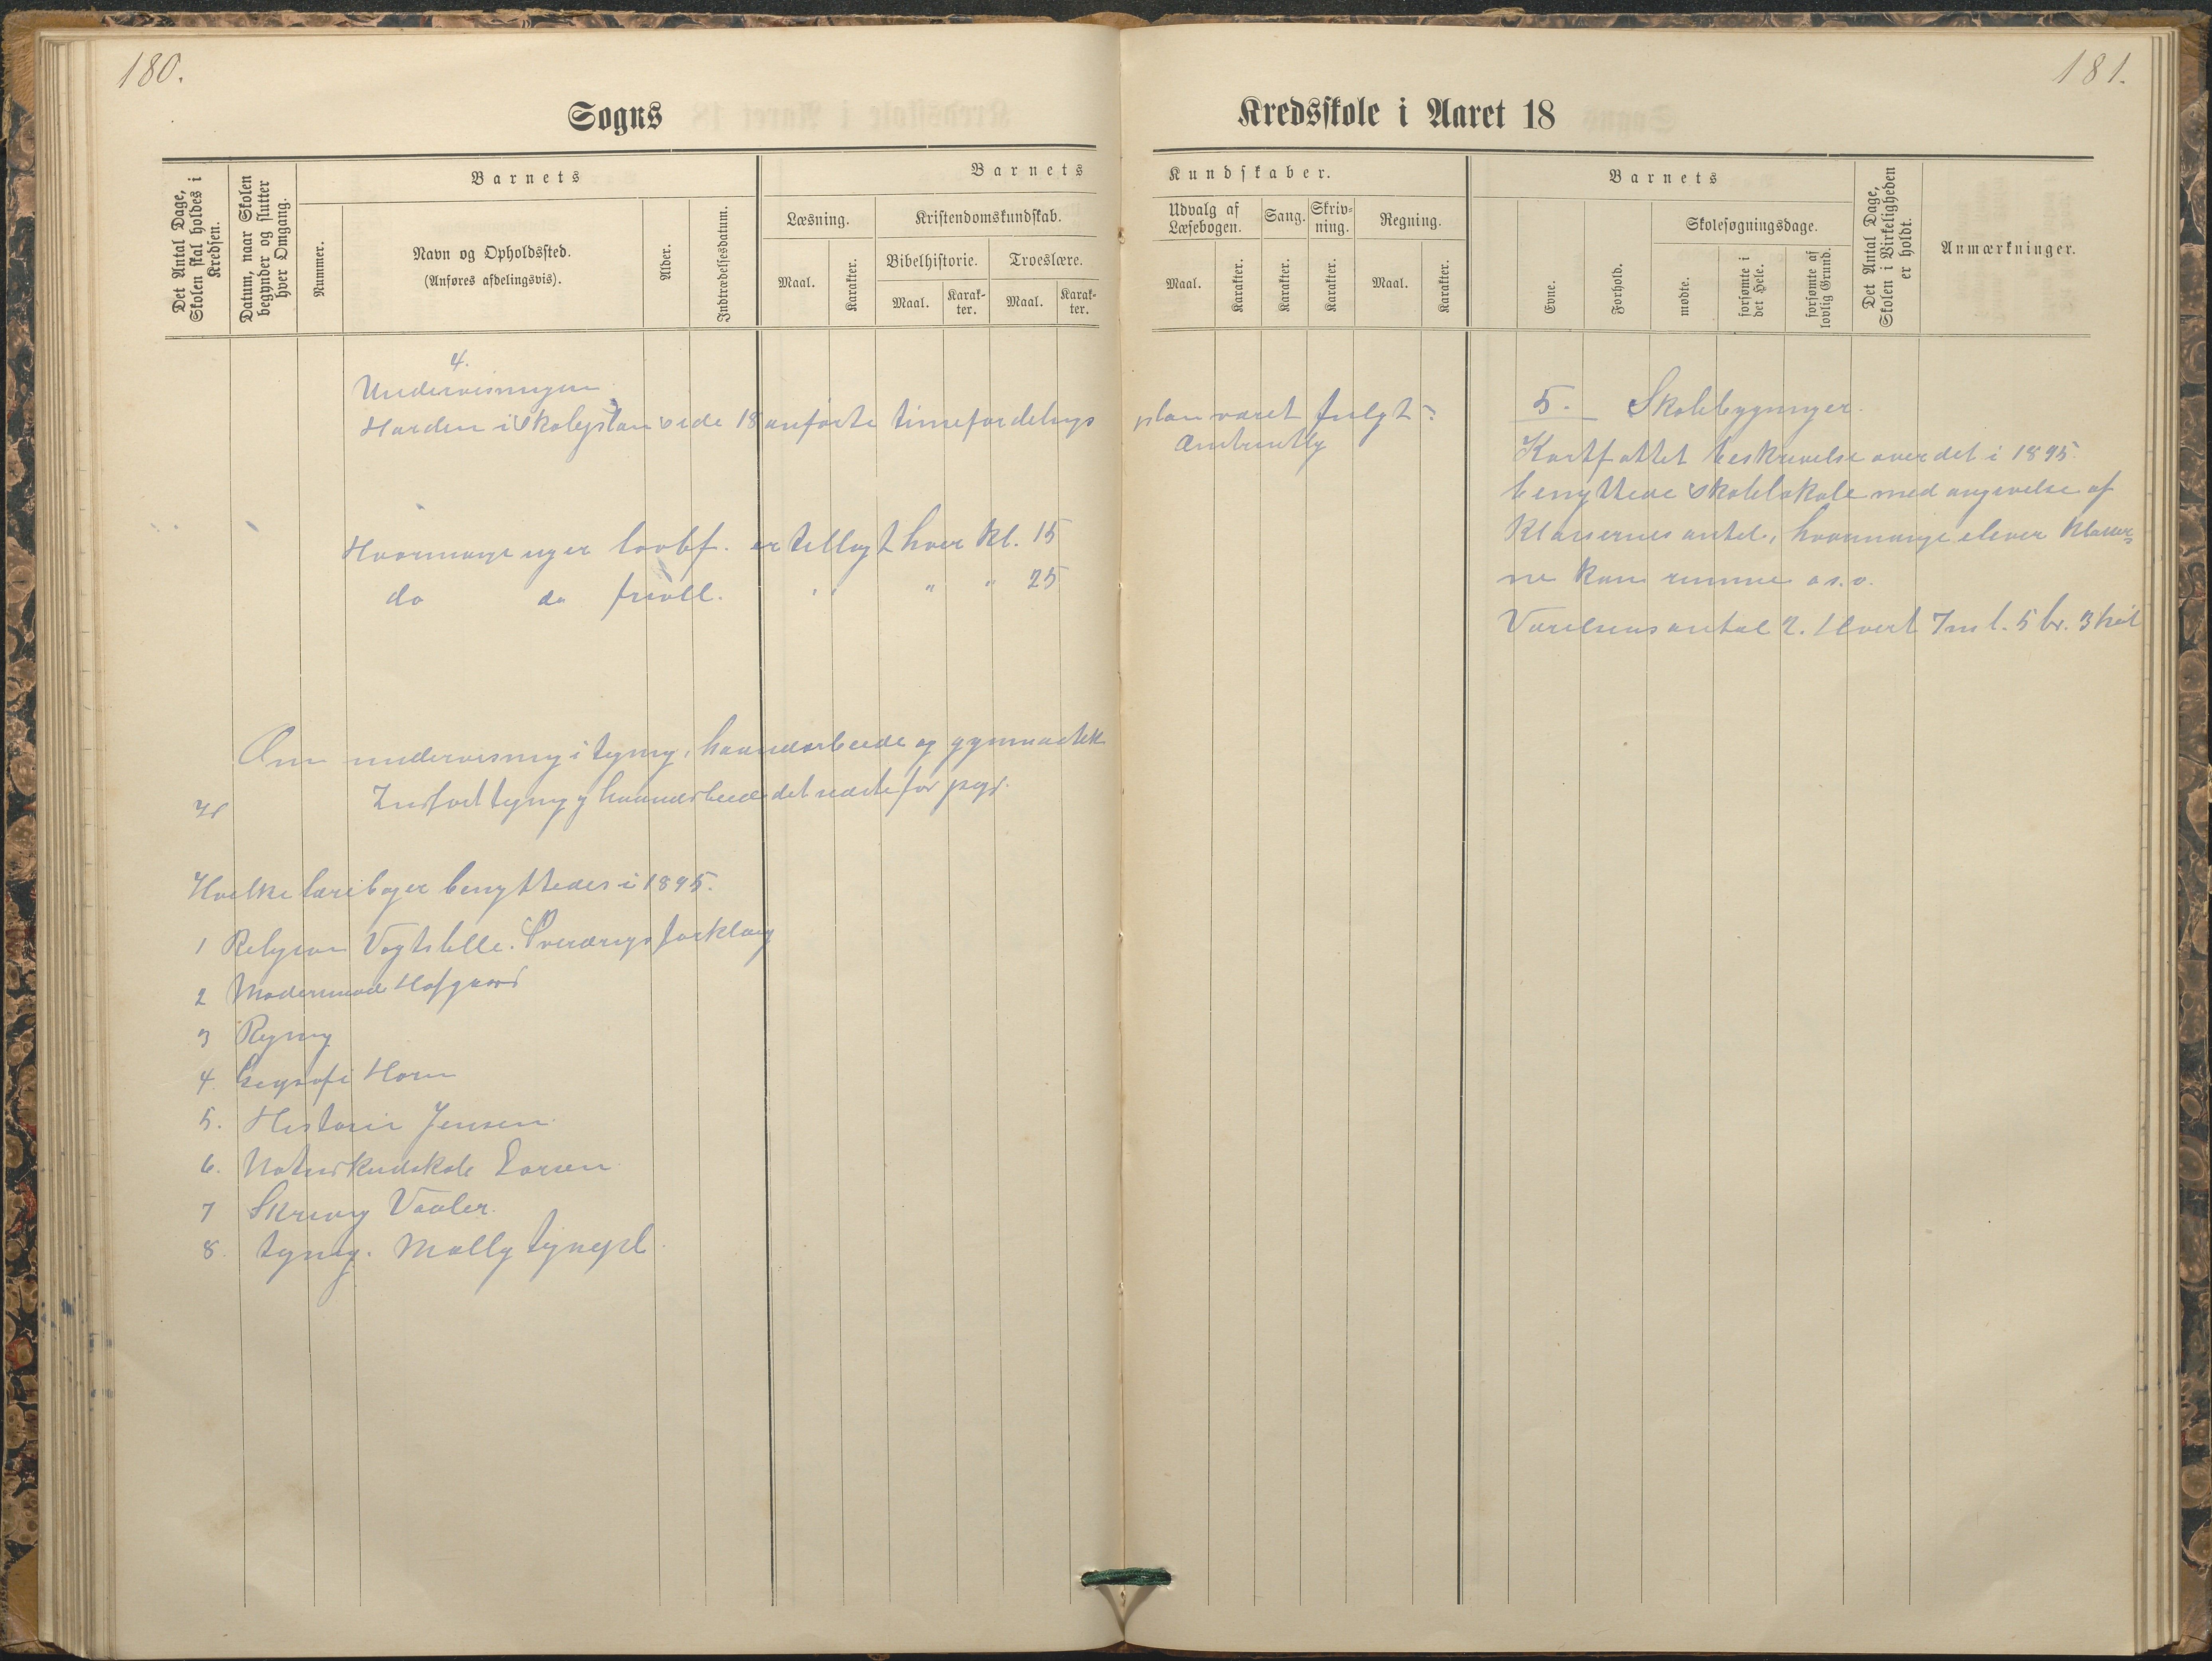 180.
Sogns
Det Antal Dage,
Skolen skal holdes i
Kredsen.
Datum, naar Skolen
begynder og slutter
hver Omgang.
Barnets
Nummer.
Navn og Opholdssted.
(Anføres afdelingsvis).
Alder.
Indtrædelsesdatum.
Barnets
Læsning.
Kristendomskundskab.
Maal.
Karakter.
Bibelhistorie.
Troeslære.
Maal.
Karak-
ter.
Maal.
Karak-
ter.
4.
Undervisningen
Har den i Skoleplan side 18 anførte timefordelings
Hvormange uger lovbf. er tillagt hver kl. 15
do do frivill. " " " 25
Om undervisning i tegning, haandarbeide og gymnastik
Indført tegning haandarbeide det næste for
Hvilke lærebøger benyttedes i 1895.
1 Religion Vogts bibelh. Sverdrups forklaring
2 Modersmaal Hofgaard
3 Regning
4. Geografi Horn
5. Historie Jensen
6. Naturkundskab Larsen
7 Skrivng Vaaler.
8. tegning.
181.
Kredsskole i Aaret 18
Kundskaber.
Udvalg af
Læsebogen.
Sang.
Skriv-
ning.
Regning.
Maal.
Karakter.
Karakter.
Karakter.
Maal.
Karakter.
Barnets
Evne.
Forhold.
Skolesøgningsdage.
mødte.
forsømte i
det Hele.
forsømte af
lovlig Grund.
Det Antal Dage,
Skolen i Virkeligheden
er holdt.
Anmærkninger.
plan været fulgt?
5. Skolebygninger.
Kortfattet beskrivelse over det i 1895
benyttede skolelokale med angivelse af
Klassernes antal, hvormange elever klasser=
ne kan rumme o.s.v.
Værelsens antal 2. Hvert 7 m l. 5 br. 3 høit